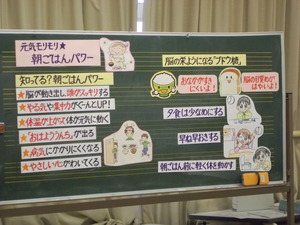 元気モリモリ★
朝ごはんパワー
知ってる?朝ごはんパワー
★脳が動き出し、頭がスッキリする
★やる気や集中力がぐーんとUP!
★体温が上がって体が元気に動く
★「おはようんち」が出る
★病気にかかりにくくなる
★やさしい心がわいてくる
脳の栄ようになる「ブドウ糖」
おなかがすきにくいよ!
脳の目覚めがはやいよ!
夕食は少なめにする
早ね早おきする
朝ごはん前に軽く体を動かす